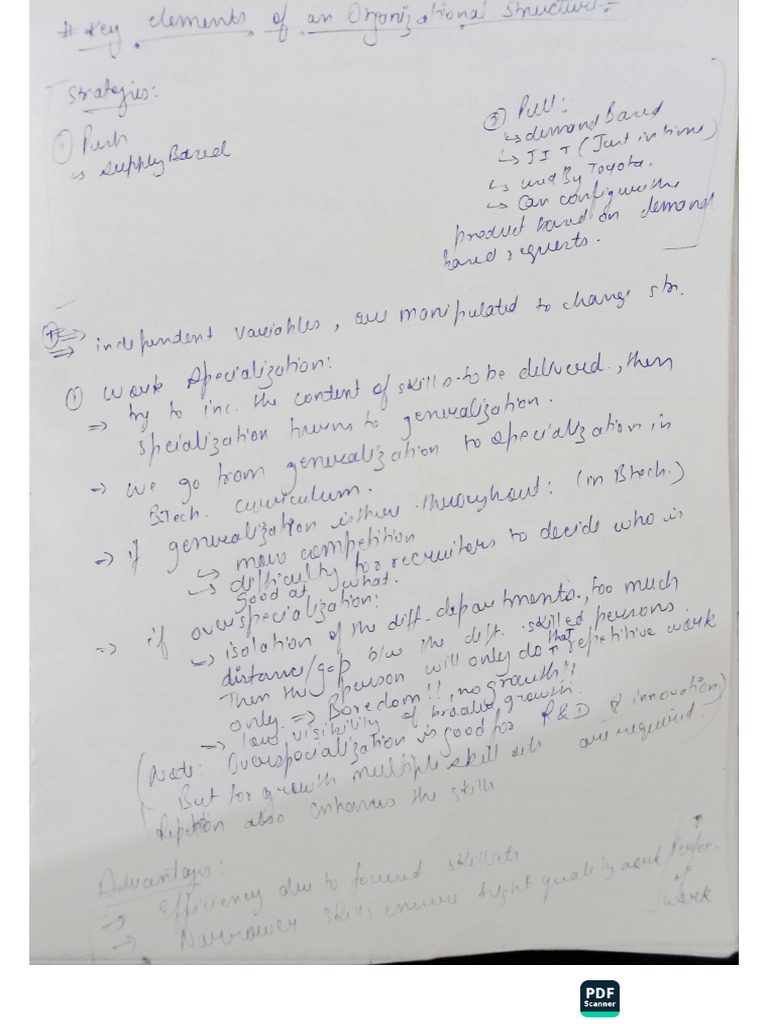 # Key elements of an Organizational Structure:-
Strategies:
① Push
↳ supply Based
② Pull:
↳ demand Based
↳ JIT (Just in time)
↳ used By Toyota.
↳ Can configure the
product based on demand
based requests.
⇒ independent variables, are manipulated to change str.
① Work Specialization:
⇒ try to inc. the content of skills to be delivered, then
spcialization turns to generalization.
⇒ we go from generalization to specialization in
BTech. curriculum.
⇒ if generalization is there throughout: (in Btech.)
↳ more competition
↳ difficulty for recruiters to decide who is
good at what.
⇒ if overspecialization:
↳ isolation of the diff. departments, too much
distance/gap b/w the diff. skilled persons.
Then the person will only do that repetitive work
only. ⇒ Boredom!!, no growth!!
⇒ low visibility of broader growth.
(Note: Overspocialization is good for R&D & innovation)
But for growth multiple skill sets are required.
Repetition also enhances the skills
Advantages:
⇒ Efficiency due to focused skillsets
⇒ Narrower skills ensure hight quality work
work
PDF
Scanner